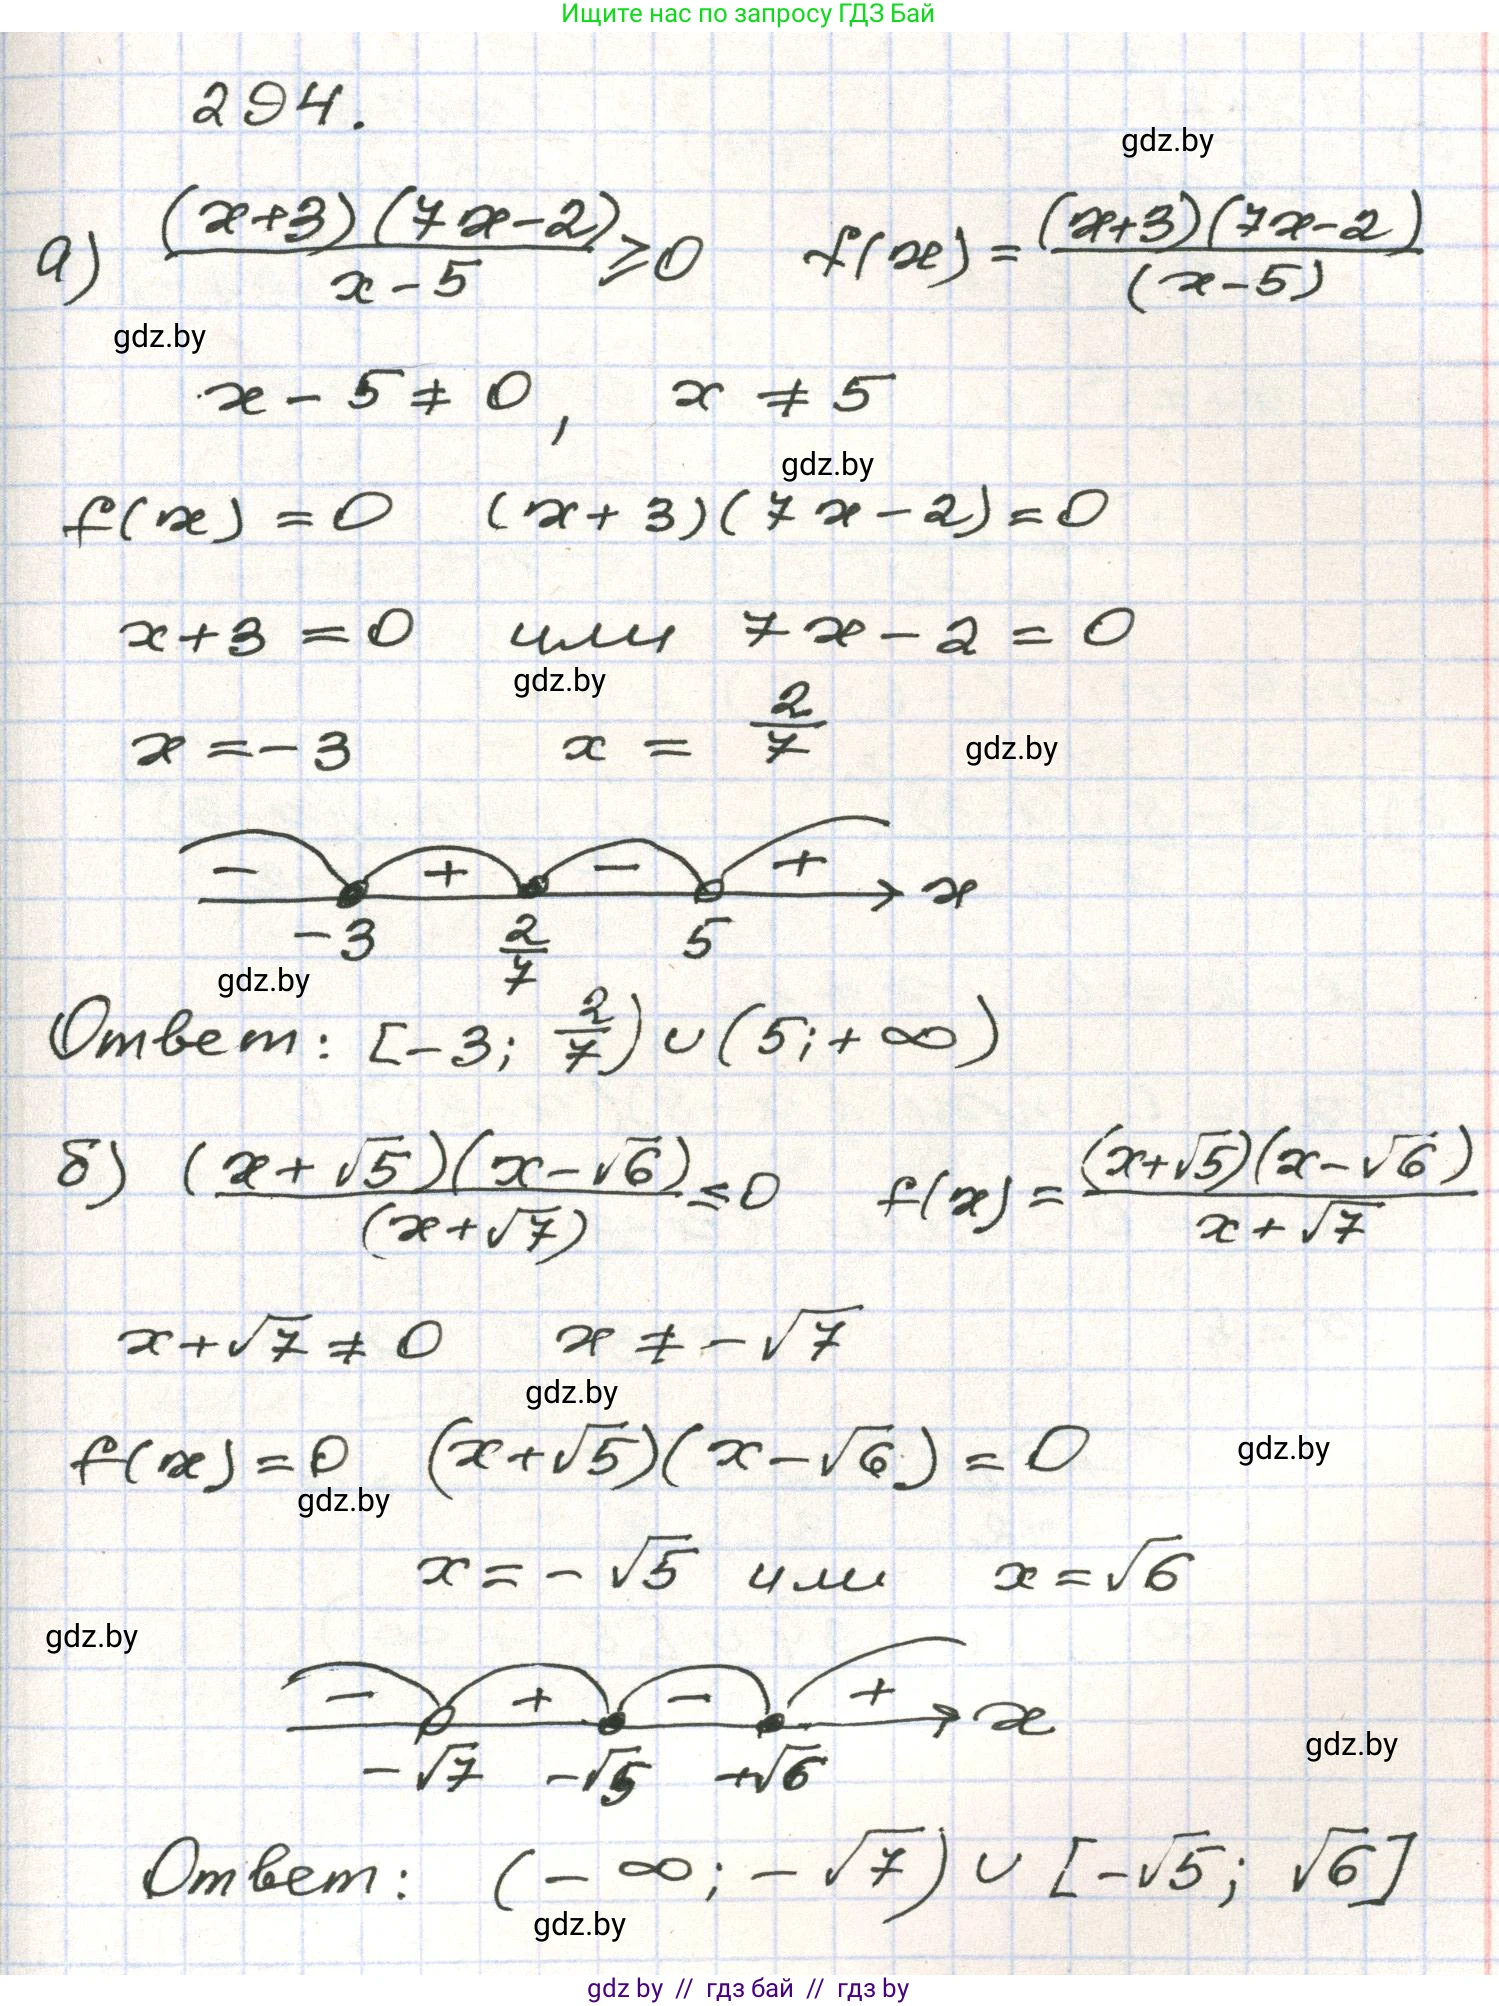 Ищите нас по запросу ГДЗ Бай
294.
gdz.by
а) (x+3)(7x-2)/(x-5) ≥ 0 f(x) = (x+3)(7x-2)/(x-5)
gdz.by
x - 5 ≠ 0, x ≠ 5
gdz.by
f(x) = 0 (x+3)(7x-2) = 0
x+3 = 0 или 7x - 2 = 0
gdz.by
x = -3 x = 2/7
gdz.by
- + - + x
-3 2/7 5
gdz.by
Ответ: [-3; 2/7) ∪ (5; +∞)
б) (x+√5)(x-√6)/(x+√7) ≤ 0 f(x) = (x+√5)(x-√6)/(x+√7)
x+√7 ≠ 0 x ≠ -√7
gdz.by
f(x) = 0 (x+√5)(x-√6) = 0
gdz.by
gdz.by
x = -√5 или x = √6
gdz.by
- + - + x
-√7 -√5 +√6
gdz.by
Ответ: (-∞; -√7) ∪ [-√5; √6]
gdz.by
gdz.by // гдз бай // гдз by